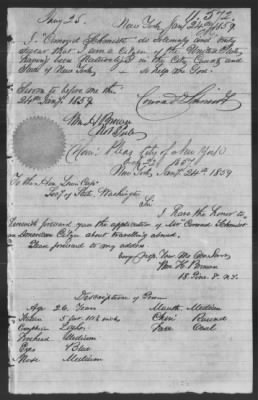 Jany 25. 11.572
New York Jany 24th 1859.
I Conrad Schmidt do solemnly and truly
swear that I am a Citizen of the United States
having been Naturalized in the City County and
State of New York So help me God.
Sworn to before me this
24th Jany. 1859. Conrad Schmidt
Wm. H.
City of New York
1857
New York Jany 24th 1859
To the Hon Lewis Cass
Secy of State, Washington
Sir
I have the honor to
herewith forward you the application of Mr Conrad Schmidt
an American Citizen about travelling abroad.
Please forward to my address
Wm. H.
18 Pine St. N.Y.
Description of Person
Age 26 Years Mouth Medium
Stature 5 feet Chin Round
Complexion Face Oval
Forehead Medium
Eyes Blue
Nose Medium